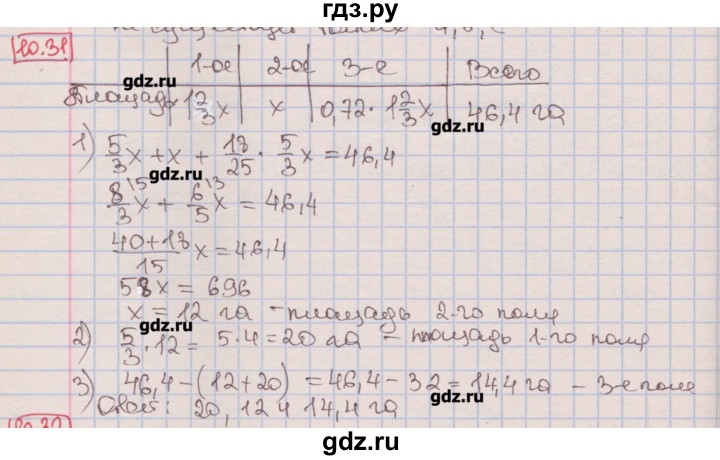 гдз.ру
20.31
1-ое 2-ое 3-е Всего
Площадь 1 2/3 x x 0,72 · 1 2/3 x 46,4 га
gdz.ru gdz.ru
1) 5/3 x + x + 18/25 · 5/3 x = 46,4
gdz.ru gdz.ru
8/3 x + 6/5 x = 46,4
(40+18)/15 x = 46,4
58x = 696
x = 12 га – площадь 2-го поля
gdz.ru
2) 5/3 · 12 = 5·4 = 20 га – площадь 1-го поля
3) 46,4 – (12+20) = 46,4 – 32 = 14,4 га – 3-е поле
gdz.ru
Ответ: 20, 12 и 14,4 га
20.32
gdz.ru